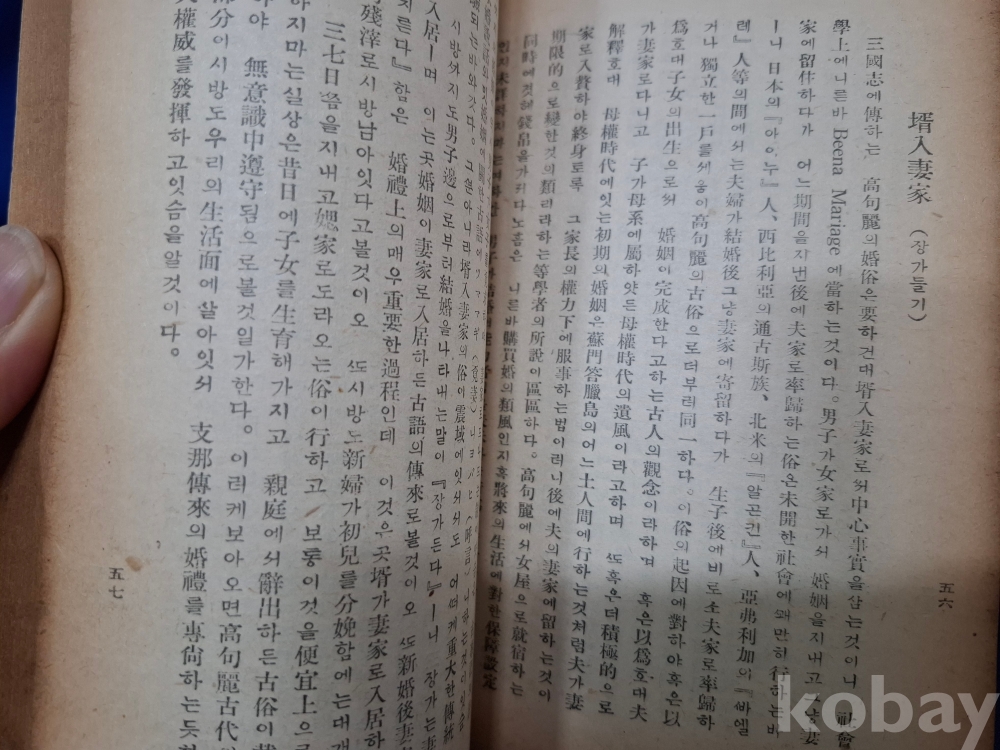 壻入妻家 (장가들기)
三國志에傳하는 高句麗의婚俗은要하건대壻入妻家로써中心事實을삼는것이니 社會
學上에니른바 Beena Mariage 에當하는것이다。男子가女家로가서 婚姻을지내고
家에留住하다가 어느期間을지낸後에夫家로率歸하는俗은未開한社會에꽤만히行하는바
ㅣ니 日本의『아이누』人、西比利亞의通古斯族、北米의『알곤킨』人、亞弗利加의『바엘
레』人等의間에서는夫婦가結婚後그냥妻家에寄留하다가 生子後에비로소夫家로率歸하
거나 獨立한一戶를세움이高句麗의古俗으로더부러同一하다。이俗의起因에對하야혹은以
爲호대子女의出生으로써 婚姻이完成한다고하는古人의觀念이라하며 혹은以爲호대夫
가妻家로다니고 子가母系에屬하얏든母權時代의遺風이라고하며 또혹은더積極的으로
解釋호대 母權時代에잇는初期의婚姻은蘇門答臘島의어느土人間에行하는것처럼夫가妻
家로入贅하야終身토록 그家長의權力下에服事하는법이러니後에夫의妻家에留하는것이
期限的으로變한것의類리라하는等學者의所說이區區하다。高句麗에서女屋으로就宿하는
同時에것헤錢帛을가져다노흠은 니른바購買婚의類風인지혹將來의生活에對한保障設定
五六
되는바와갓다。그뿐아니라壻入妻家의俗이震域에잇서서도 어떠케重大한傳統
시방까지도男子邊으로부터結婚을나타내는말이『장가든다』ㅣ니 장가는妻
入居ㅣ며 이는곳婚姻이妻家로入居하든古語의傳來로볼것이오 또新婚後妻
치른다』함은 婚禮上의매우重要한過程인데 이것은곳壻가妻家로入居하
殘滓로시방남아잇다고볼것이오 또시방도新婦가初兒를分娩함에는대개
三七日쯤을지내고媤家로도라오는俗이行하고 보통이것을便宜上으로
하지마는실상은昔日에子女를生育해가지고 親庭에서辭出하든古俗이
야 無意識中遵守됨으로볼것일가한다。이러케보아오면高句麗古代
部分이시방도우리의生活面에살아잇서 支那傳來의婚禮를專尙하는듯
權威를發揮하고잇슴을알것이다。
五七
kobay